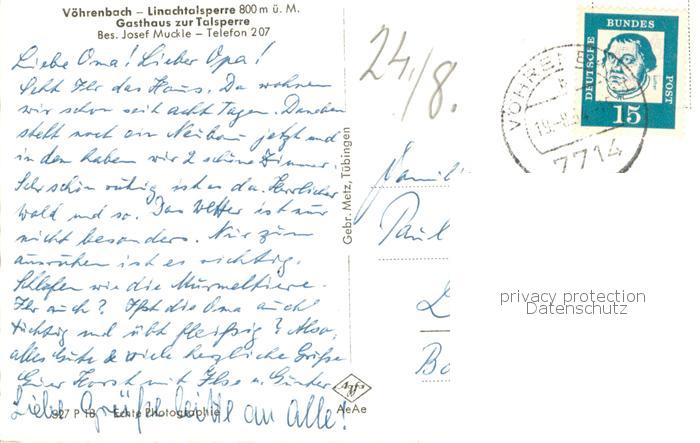 Vöhrenbach – Linachtalsperre 800 m ü. M.
Gasthaus zur Talsperre
Bes. Josef Muckle – Telefon 207
Liebe Oma! Lieber Opa!
Seht Ihr das Haus. Da wohnen
wir schon seit acht Tagen. Daneben
steht noch ein Neubau jetzt und
in dem haben wir 2 schöne Zimmer.
Sehr schön ruhig ist es da. Herrlicher
Wald und so. Das Wetter ist nur
nicht besonders. Nur zum
ausruhen ist es richtig.
Schlafen wie die Murmeltiere.
Ihr auch? Ißt die Oma auch
tüchtig und übt fleißig? Also,
alles Gute & viele herzliche Grüße
Euer Horst mit Ilse u. Günter
Liebe Grüße an Alle!
927 P 18 Echte Photographie
Gebr. Metz, Tübingen
Agfa
AeAe
24./8.
Famili
Paul
Bo
DEUTSCHE BUNDESPOST
15
VÖHREN
7714
privacy protection
Datenschutz